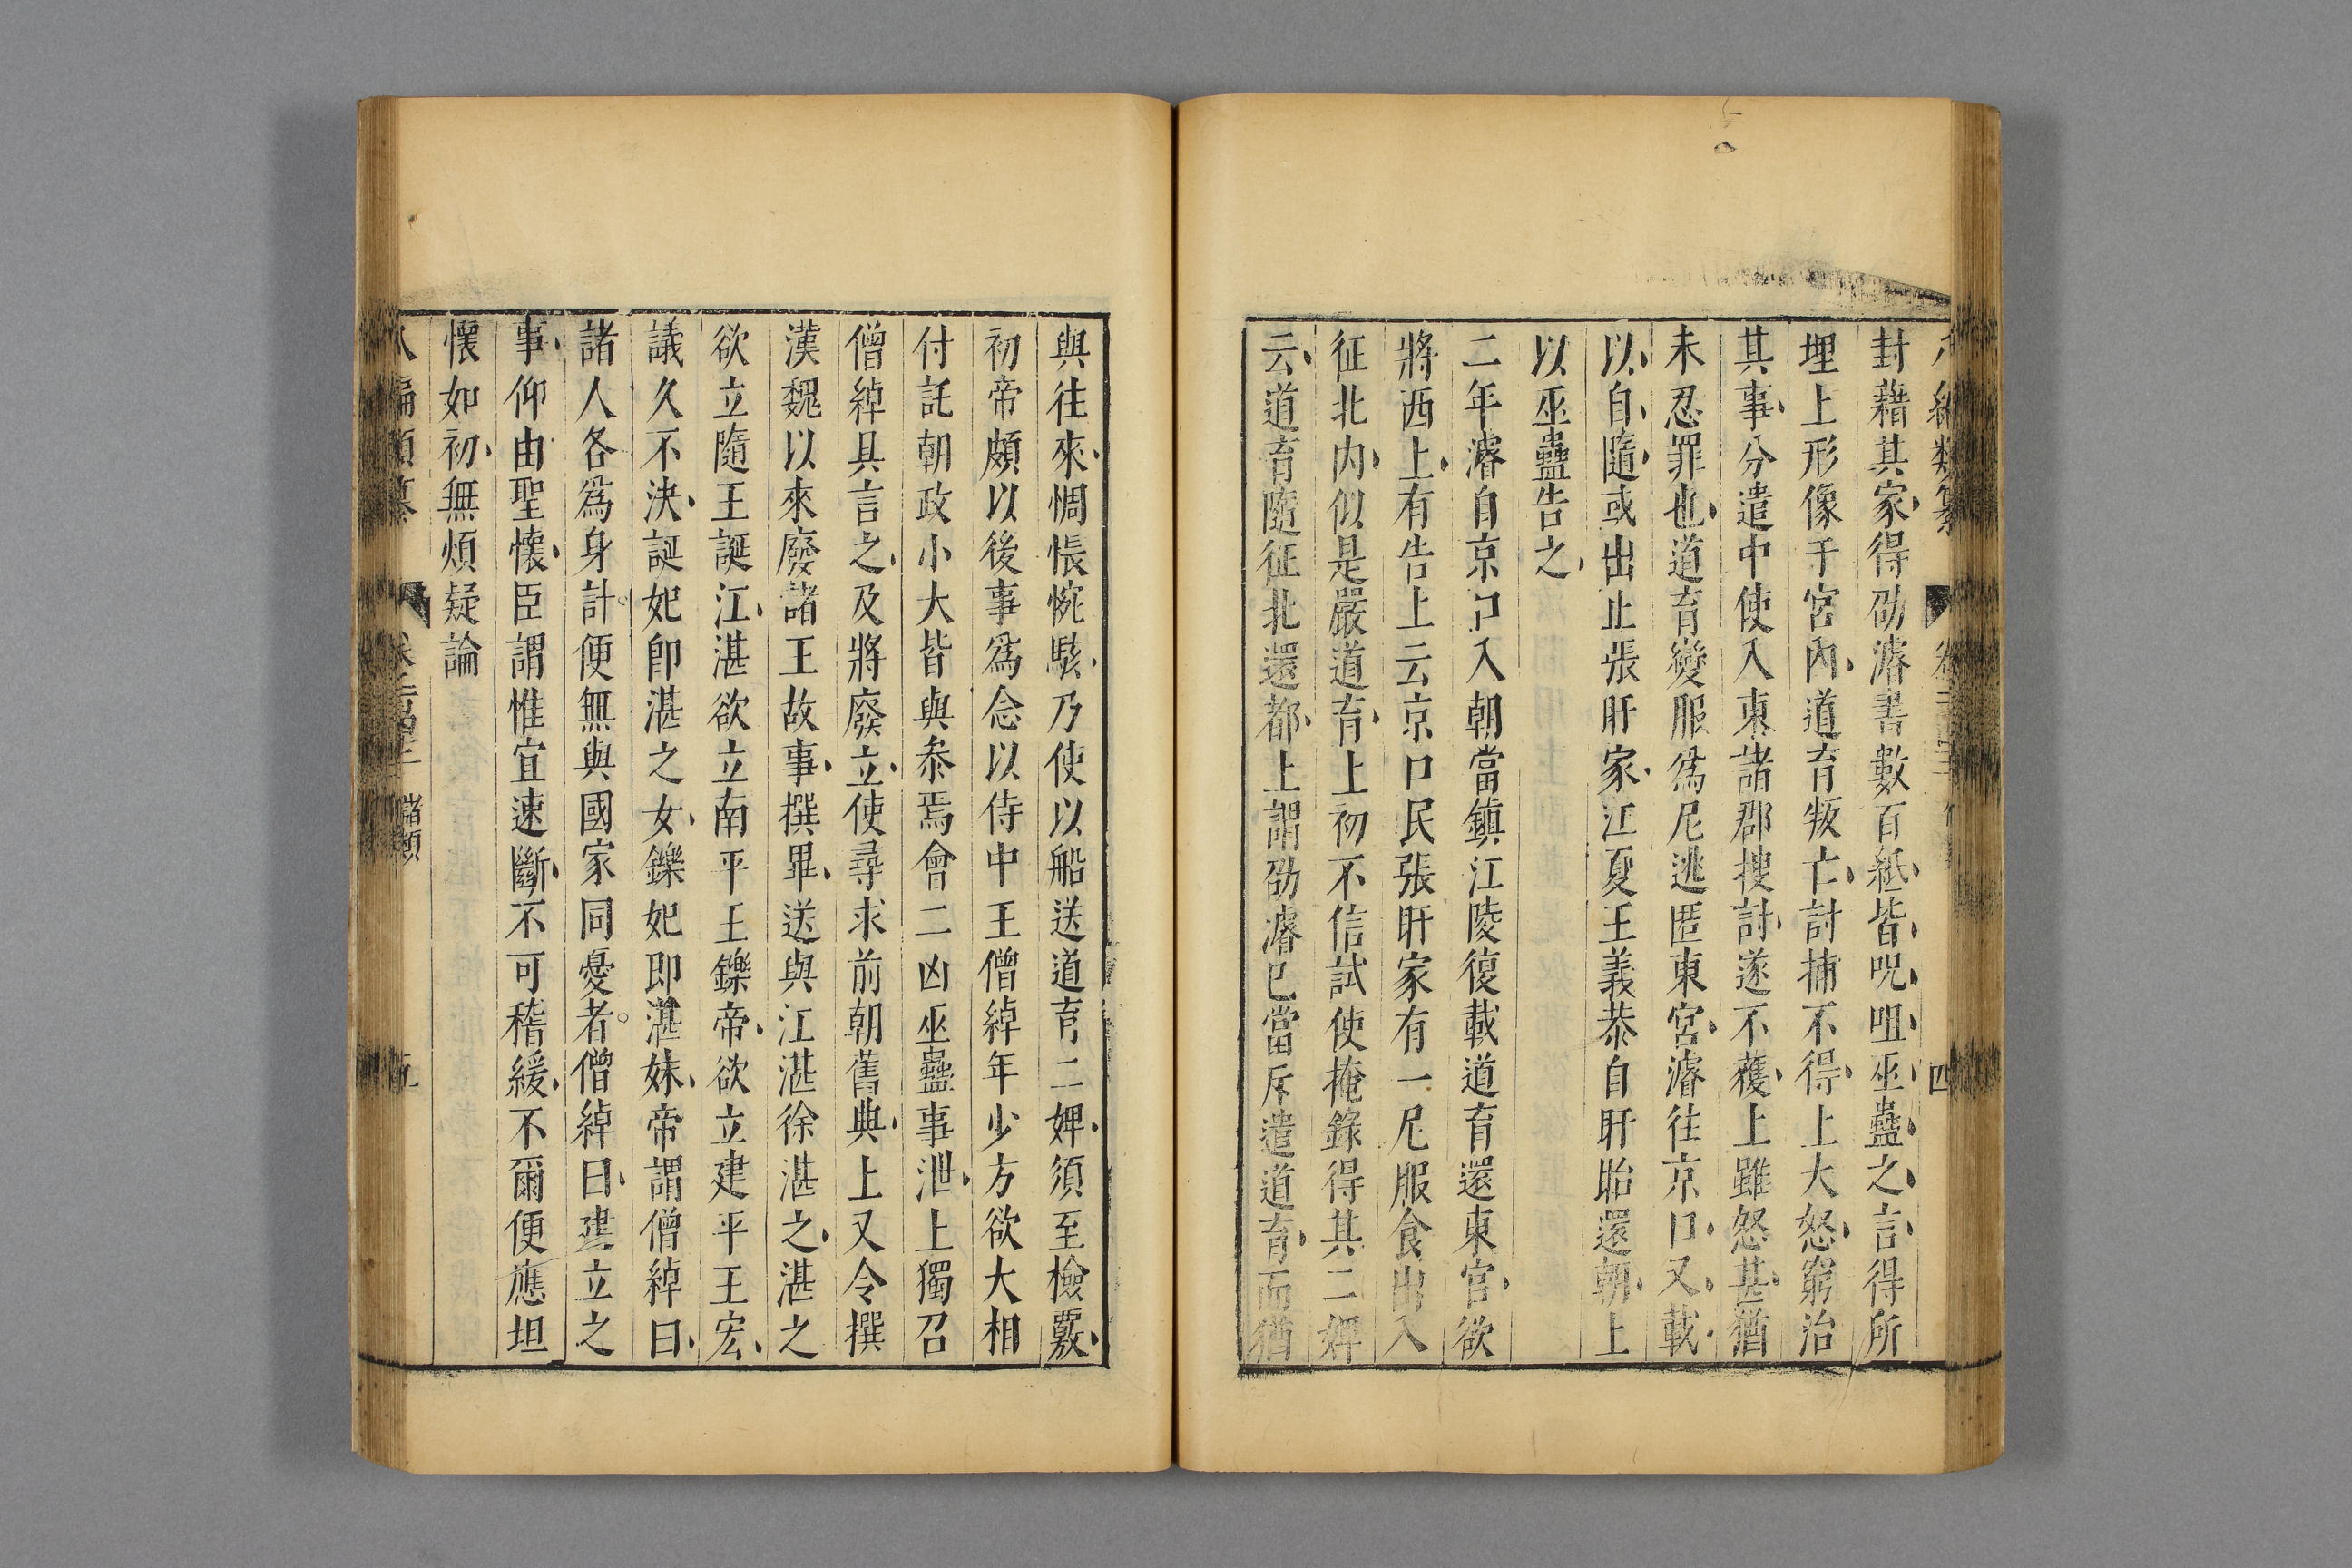 封藉其家得劭濬書數百紙皆呪咀巫蠱之言得所
埋上形像于宮內道育叛亡討捕不得上大怒窮治
其事分遣中使入東諸郡搜討遂不獲上雖怒甚猶
未忍罪也道育變服爲尼逃匿東宮濬往京口又載
以自隨或出止張旰家江夏王義恭自盱眙還朝上
以巫蠱告之
二年濬自京口入朝當鎮江陵復載道育還東宮欲
將西上有告上云京口民張旰家有一尼服食出入
征北内似是嚴道育上初不信試使掩錄得其二婢
云道育隨征北還都上謂劭濬已當斥遣道育而猶
與往來惆悵惋駭乃使以船送道育二婢須至檢覈
初帝頗以後事爲念以侍中王僧綽年少方欲大相
付託朝政小大皆與叅焉會二凶巫蠱事泄上獨召
僧綽具言之及將廢立使尋求前朝舊典上又令撰
漢魏以來廢諸王故事撰畢送與江湛徐湛之湛之
欲立隨王誕江湛欲立南平王鑠帝欲立建平王宏
議久不決誕妃卽湛之女鑠妃即湛妹帝謂僧綽曰
諸人各爲身計便無與國家同憂者僧綽曰建立之
事仰由聖懷臣謂惟宜速斷不可稽緩不爾便應坦
懷如初無煩疑論